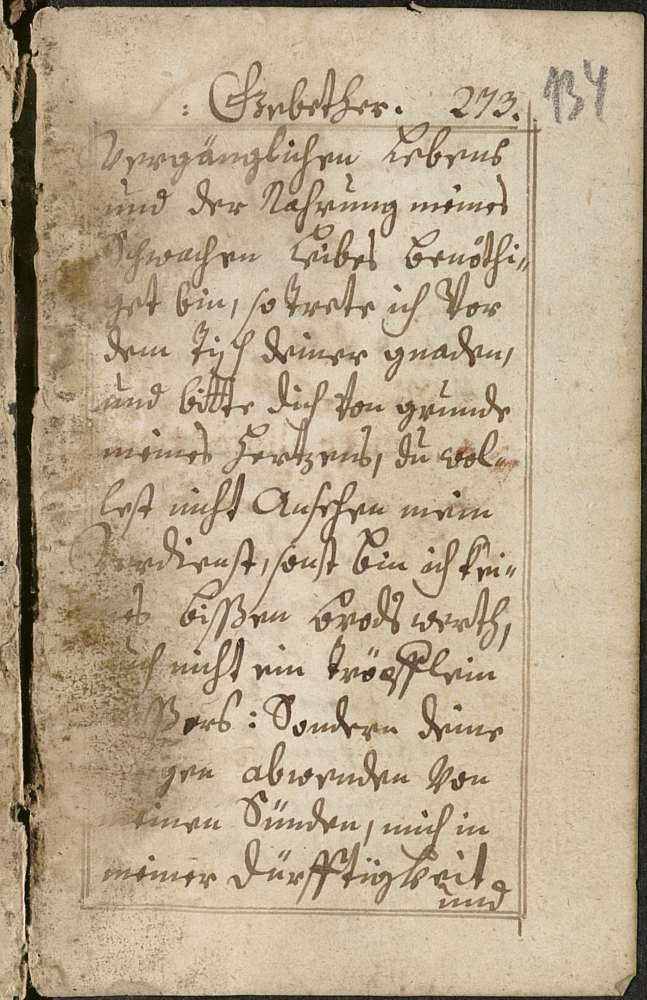 : Gebether. 273.
134
Vergänglichen Lebens
und der Nahrung meines
Schwachen Leibes benöthi-
get bin, so trete ich Vor
dem Tisch deiner gnaden,
und bitte dich Von grunde
meines Hertzens, du wol-
lest nicht Ansehen mein
Verdienst, sonst bin ich kei-
es bißen brods werth,
uch nicht ein tröpfflein
ßers : Sondern deine
gen abwenden Von
meinen Sünden, mich in
meiner Dürfftigkeit
und